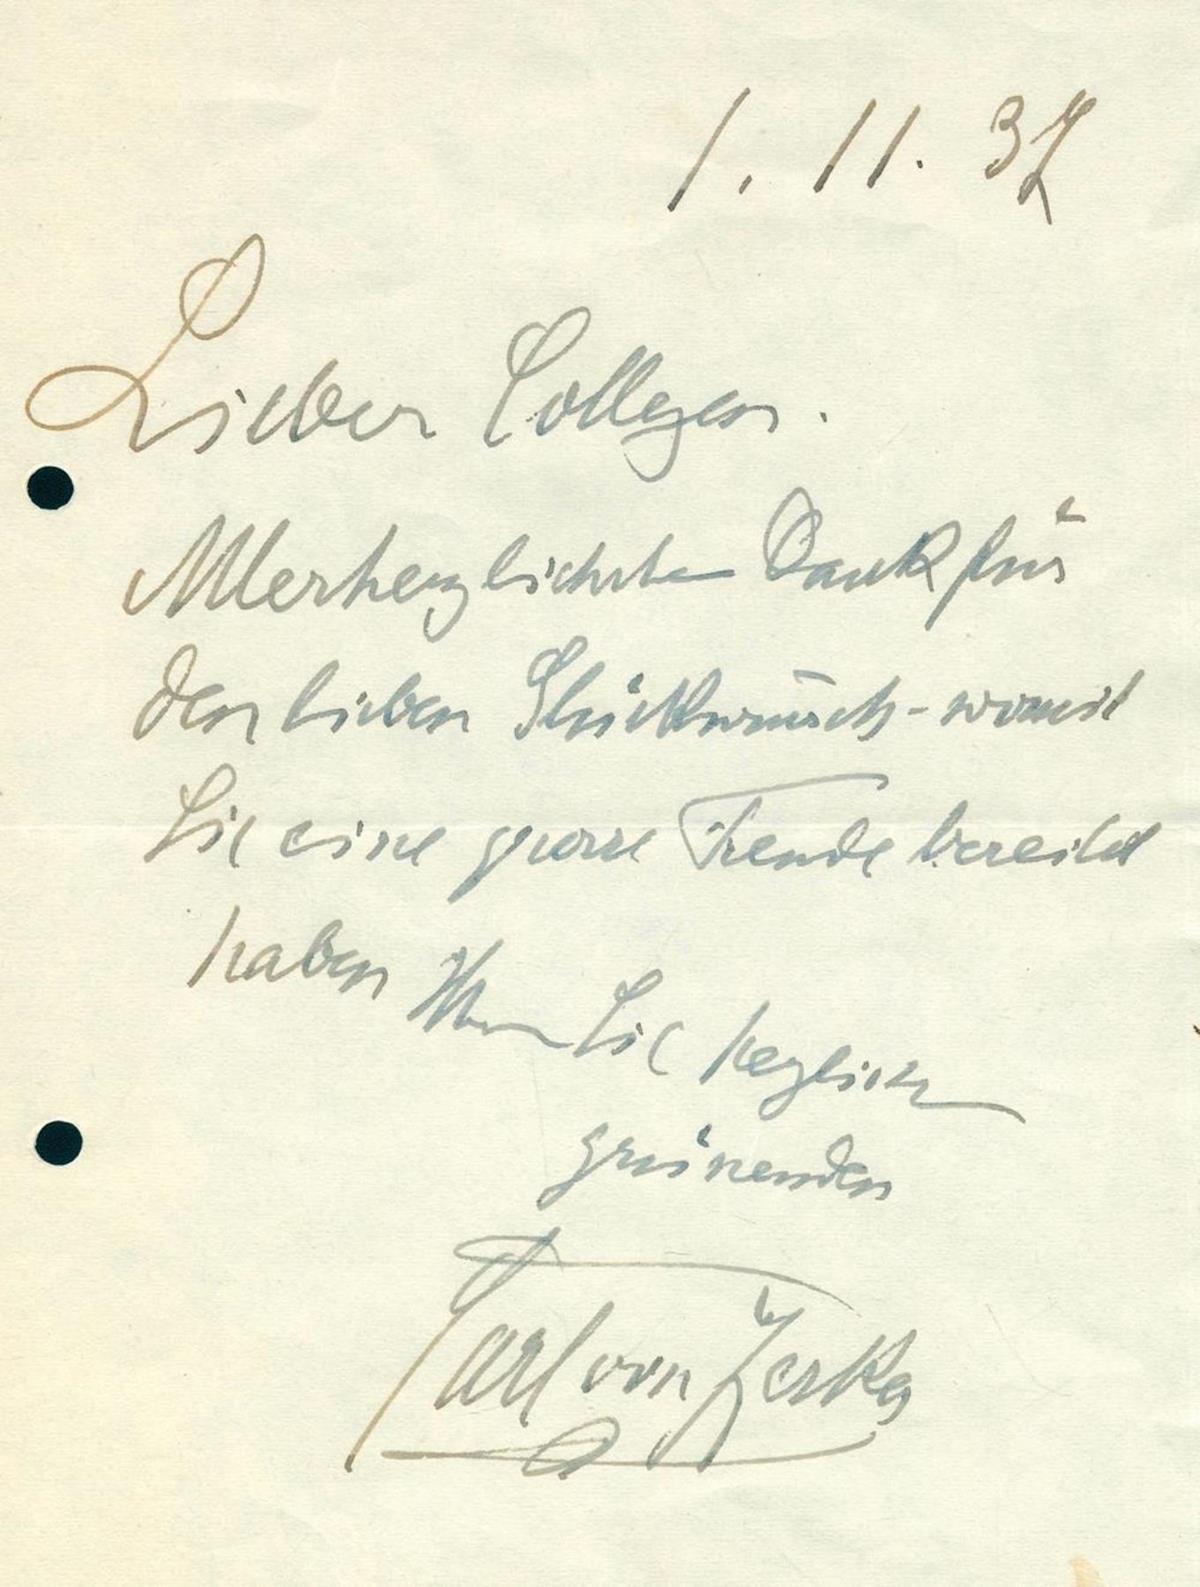 1. 11. 37
Lieber Collegen.
Allerherzlichsten Dank für
den lieben Glückwünsch - womit
Sie eine grosse Freude bereitet
haben Ihren Sie herzlich
grüssenden
Carl von Zeska